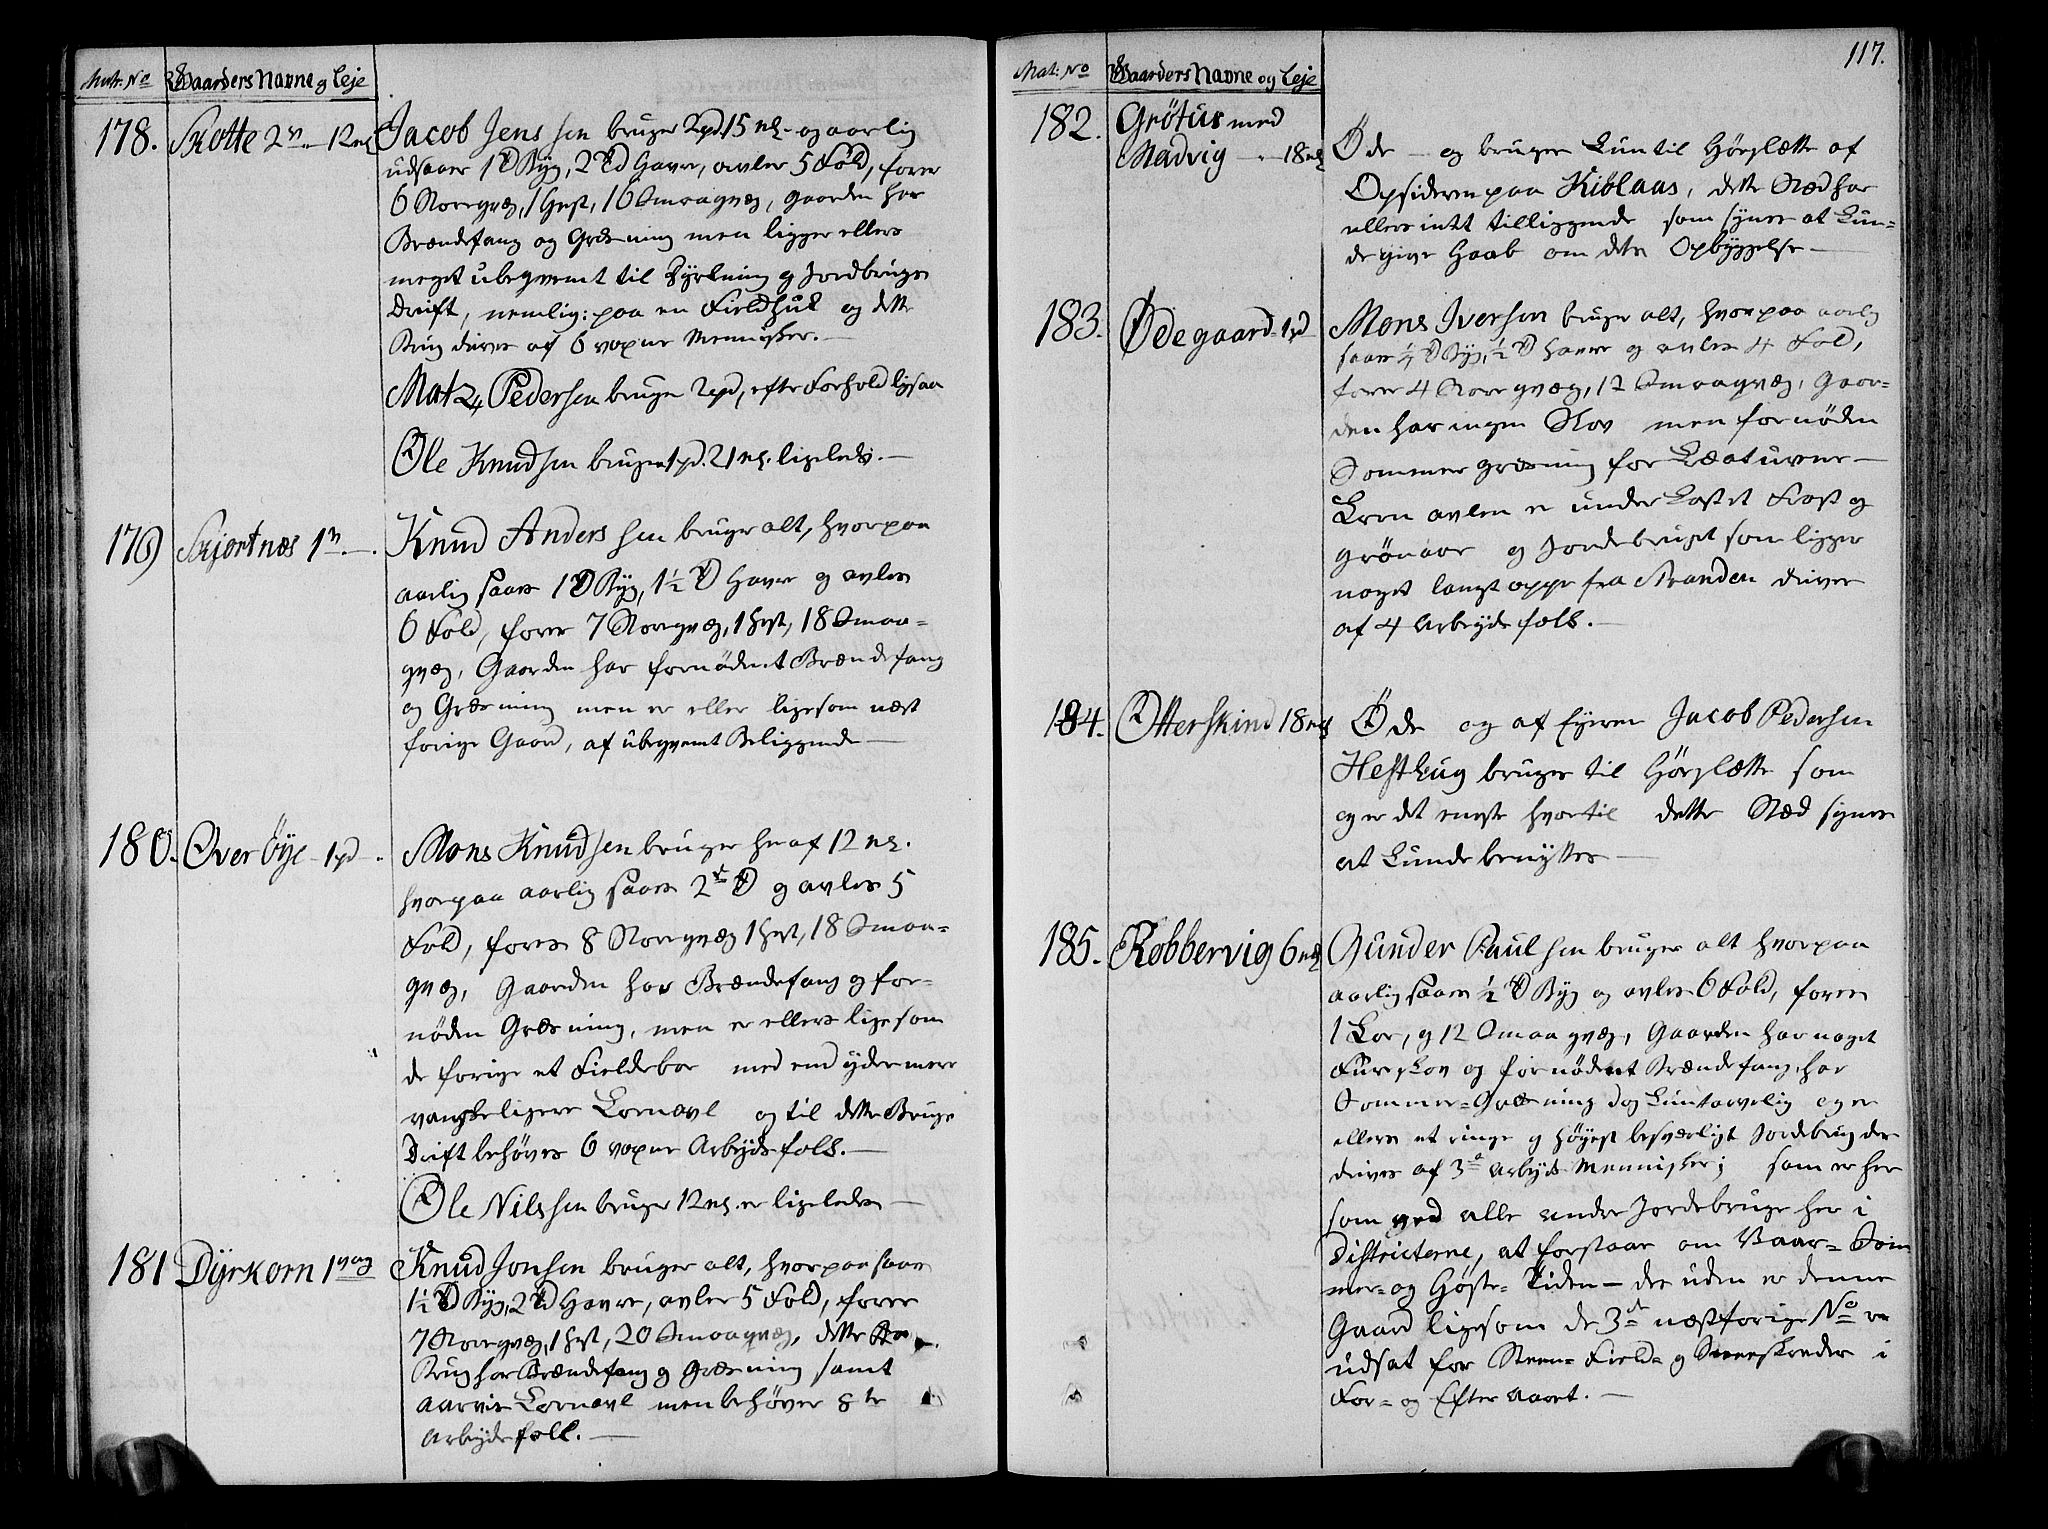 Matr: No Gaarders Navne og Leje
178. Skotte 2 v. — 12 mk
Jacob Jenssen bruger 2pd. 15 mk. og aarlig
udsaaer 1 Td Byg, 2 Td Havre, avler 5 Fold, foder
6 Storeqvæg, 1 Hest, 16 Smaaqvæg, Gaarden har
Brændefang og Græsning men ligger ellers
meget ubeqvemt til Dyrkning og Jordbrugs
Drift, nemlig: paa en Fieldhuk og dette
Brug drives af 6 voxne Mennisker. —
Matz Pedersen bruger 2pd, efter Forhold ligsaa
Ole Knudsen bruger 1pd. 21 mk. ligeledes. —
179 Skjortnæs 1 v. —
Knud Anderssen bruger alt, hvorpaa
aarlig saaes 1 Td Byg, 1½ Td Havre og avles
6 Fold, foder 7 Storeqvæg, 1 Hest, 18 Smaa-
qvæg, Gaarden har fornødent Brændefang
og Græsning men er eller ligesom næst
forige Gaard, af ubeqvemt Beliggende —
180. Overöÿe — 1pd — .
Mons Knudsen bruger heraf 12 mk.
hvorpaa aarlig saaes 2de Td og avles 5
Fold, fores 8 Storeqvæg 1 Hest, 18 Smaa-
qvæg, Gaarden har Brændefang og for-
nöden Græsning, men er ellers ligesom
de forige et Fieldeboe med end ydermere
vanskeligere Kornavl og til dette Brugs
Drift behöves 6 voxne Arbejdsfolk. —
Ole Nilssen bruger 12 mk. er ligeledes —
181 Dÿrkorn 1 vog
Knud Jonsen bruger alt, hvorpaa saaes
1½ Td Byg, 2 Td Havre, avler 5 Fold, foder
7 Storeqvæg, 1 Hest, 20 Smaaqvæg, dette
Brug har Brændefang og Græsning samt
aarvis Kornavl men behöver 8te
Arbejdsfolk. —
117.
Mat: No Gaarders Navne og Leje
182. Gröttus med
Madvig — . — 18 mk
Öde — og bruges kun til Höeslætte af
Opsidderen paa Kiölaas, dette Stæd har
ellers intet tilliggende som synes at kun-
de give Haab om dets Opbyggelse —
183. Ødegaard — 1pd
Mons Iversen bruger alt, hvorpaa aarlig
saaes ¼ Td Byg, ½ Td Havre og avles 4 Fold,
foder 4 Storeqvæg, 12 Smaaqvæg, Gaar-
den har ingen Skov men fornöden
Sommergræsning for Kreaturene —
Kornavlen er underkastet Frost og
grönaar og Jordebruget som ligger
noget langt oppe fra Stranden drives
af 4 Arbejdsfolk. —
184. Otterskind 18 mk
Öde og af Eyeren Jacob Pedersen
Hesthug bruges til Höeslætte som
og er det eneste hvortil dette Stæd synes
at kunde benyttes —
185. Robbervig 6 mk
Gunder Paulsen bruger alt hvorpaa
aarlig saaes ½ Td Byg og avles 6 Fold, foder
1 Koe, og 12 Smaaqvæg, Gaarden har noget
Fureskov og fornödent Brændefang, har
Sommer-Græsning dog kun tarvelig og er
ellers et ringe og höyest besværligt Jordebrug der
drives af 3de Arbejds Mennisker; som er her
som ved alle andre Jordebruge her i
Districterne, at forstaae om Vaar- Som
mer- og Höste- Tiden — des uden er denne
Gaard ligesom de 3de næstforige No er
udsat for Steen- Field- og Sneeskreder i
For- og Efter Aaret. —